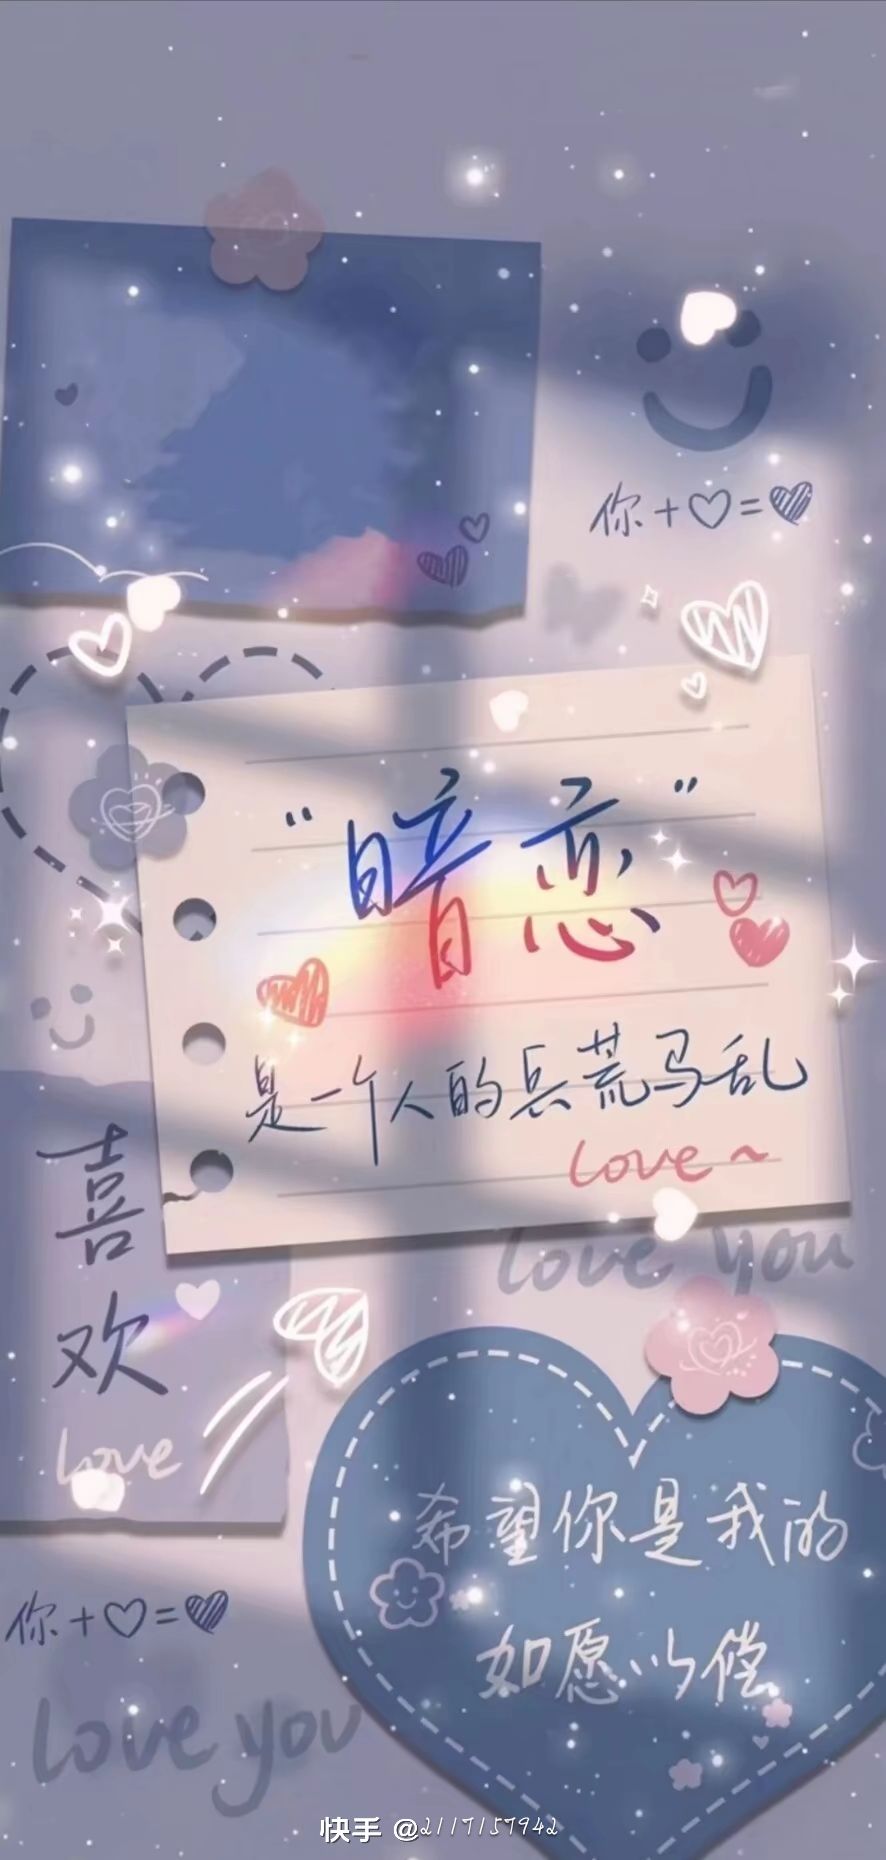 你+♡=♥
“暗恋”
是一个人的兵荒马乱
love~
love you
喜
欢
love
希望你是我的
如愿以偿
你+♡=♥
love you
快手 @2117157942